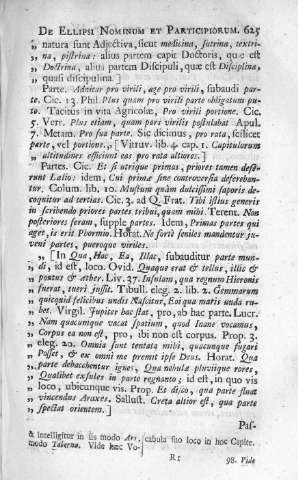 DE ELLIPSI NOMINUM ET PARTICIPIORUM. 625
„ natura sunt Adjectiva, sicut medicina, sutrina, textri-
„ na, pistrina: alius partem capit Doctoris, quæ est
„ Doctrina, alius partem Discipuli, quæ est Disciplina,
„ quasi discipulina.]
Parte. Adnitar pro virili, age pro virili, subaudi par-
te. Cic. 13. Phil. Plus quam pro virili parte obligatum pu-
to. Tacitus in vita Agricolæ, Pro virili portione. Cic.
5. Verr. Plus etiam, quam pars virilis postulabat. Apul.
7. Metam. Pro sua parte. Sic dicimus, pro rata, scilicet
parte, vel portione., [Vitruv. lib. 4. cap. 1. Capitulorum
„ altitudines efficiunt eas pro rata altiores.]
Partes. Cic. Et si utrique primas, priores tamen defe-
runt Lælio: idem, Cui primæ sine controversia deferebun-
tur. Colum. lib. 10. Mustum quàm dulcissimi saporis de-
coquitur ad tertias. Cic. 3. ad Q. Frat. Tibi istius generis
in scribendo priores partes tribui, quam mihi. Terent. Non
posteriores feram, supple partes. Idem, Primas partes qui
aget, is erit Phormio. Horat. Ne forte seniles mandentur ju-
veni partes, pueroque viriles.
„ [In Qua, Hac, Ea, Illac, subauditur parte mun-
„ di, id est, loco. Ovid. Quaque erat & tellus, illic &
„ pontus & æther. Liv. 37. Insulam, qua regnum Hieronis
„ fuerat, tueri jussit. Tibull. eleg. 2. lib. 2. Gemmarum
„ quicquid felicibus undis Nascitur, Eoi qua maris unda ru-
„ bet. Virgil. Jupiter hac stat, pro, ab hac parte. Lucr.
„ Nam quacumque vacat spatium, quod Inane vocamus,
„ Corpus ea non est, pro, ibi non est corpus. Prop. 3.
„ eleg. 20. Omnia sunt tentata mihi, quacumque fugari
„ Posset, & ex omni me premit ipse Deus. Horat. Qua
„ parte debacchentur ignes, Qua nebulæ pluviique rores,
„ Qualibet exsules in parte regnanto; id est, in quo vis
„ loco, ubicunque vis. Prop. Et disco, qua parte fluat
„ vincendus Araxes. Sallust. Creta altior est, qua parte
„ spectat orientem.]
Pas-
& intelligitur in iis modo Ars,
modo Taberna. Vide hæc Vo-
cabula suo loco in hoc Capite.
Rr
98. Vide